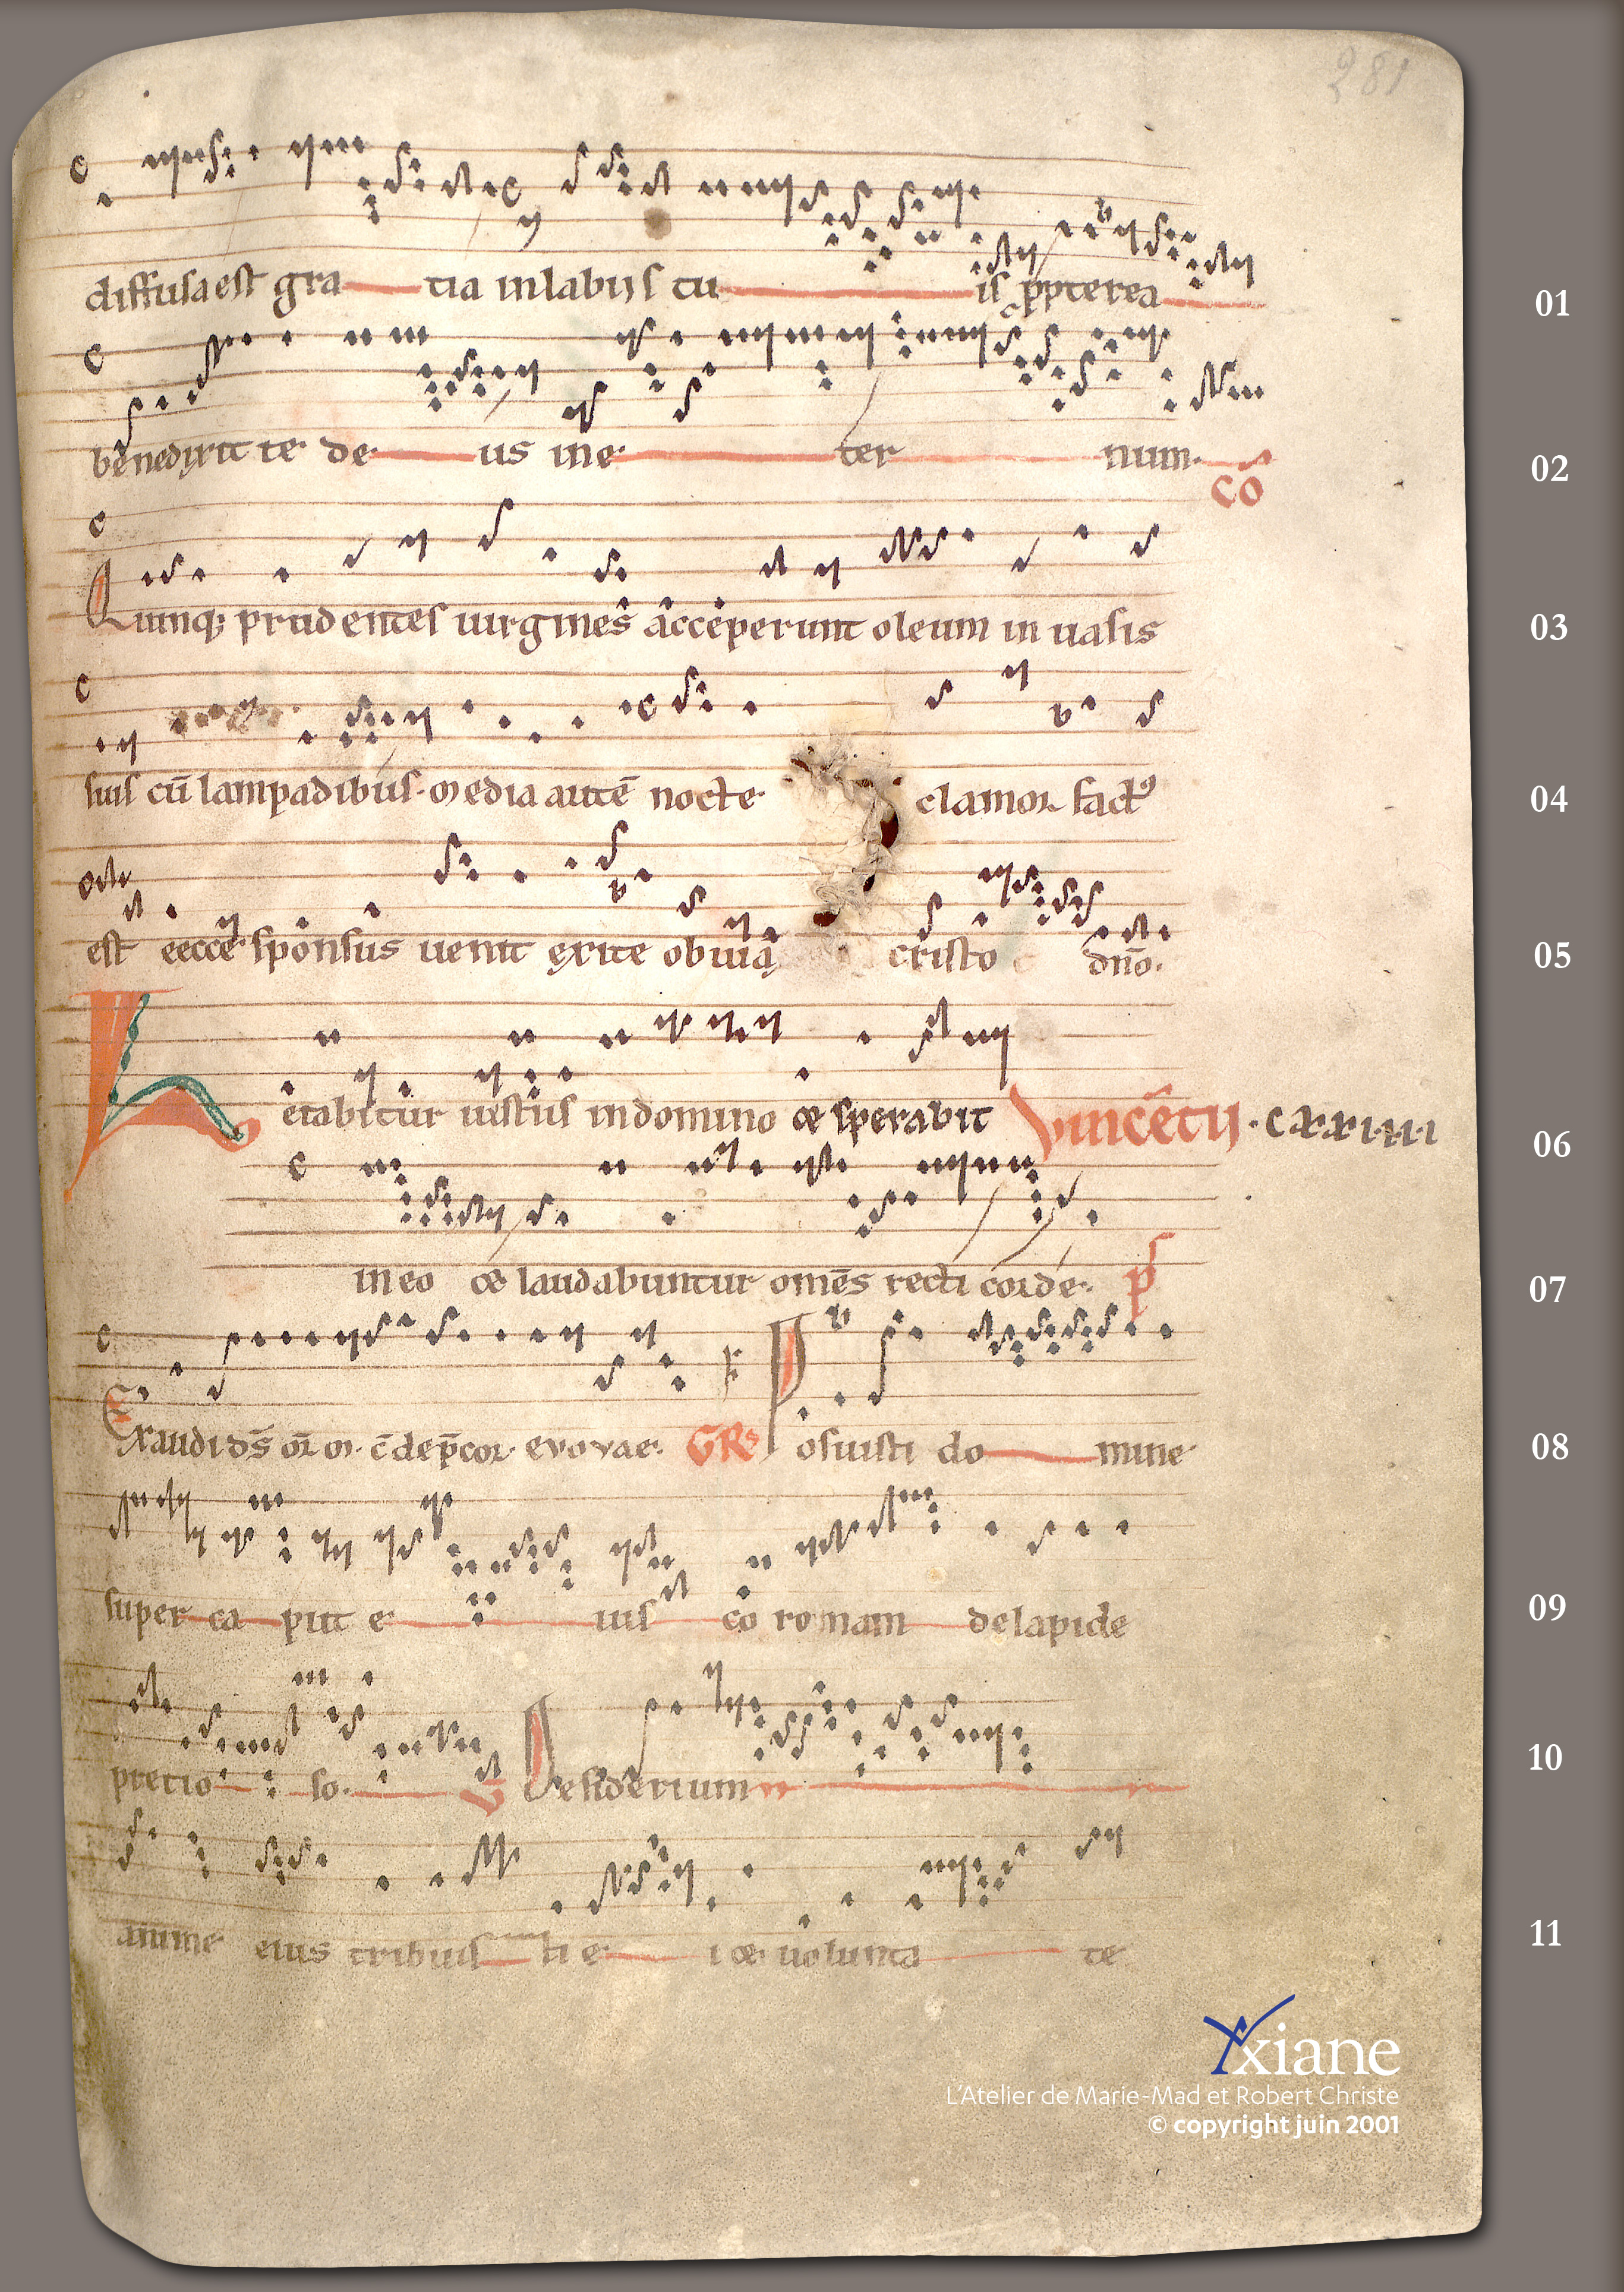 281
diffusa est gra tia in labiis tu is ppterea 01
benedixit te de us in e ter num. 02
Cō
Quinq; prudentes uirgines acceperunt oleum in uasis 03
suis cū lampadibus. Media autē nocte clamor factꝰ 04
est eecce sponsus uenit exite obuiā cristo dn̄o. 05
Letabitur iustus in domino & sperabit Vincētii . cxxiiii 06
in eo & laudabuntur om̄s recti corde. p̄s 07
Exaudi ds̄ or̄ m. c̄ dep̄cor. evovae. GR̄ Posuisti do mine 08
super ca put e ius co ronam de lapide 09
pretio so. V Desiderium 10
anime eius tribuis ti e i & uolunta te 11
Yxiane
L'Atelier de Marie-Mad et Robert Christe
© copyright juin 2001